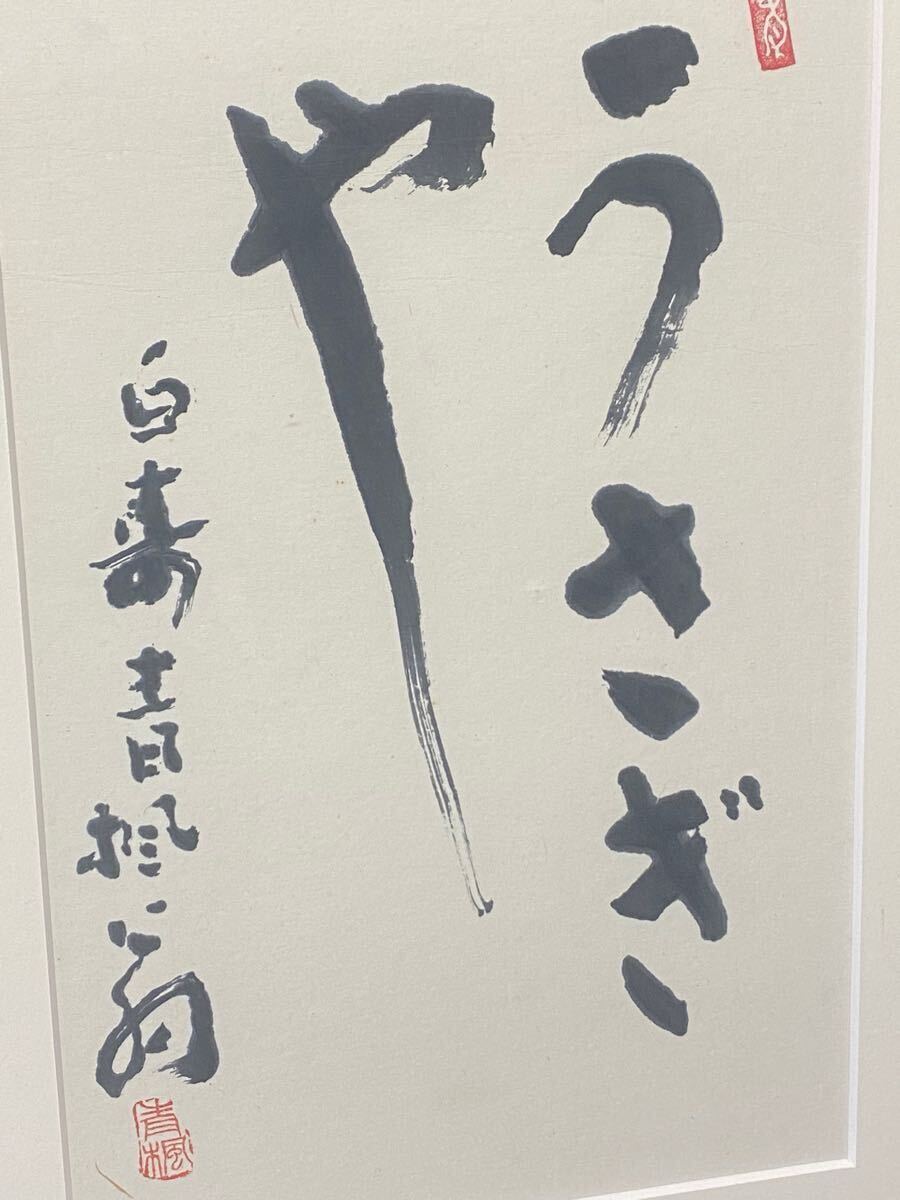 うさぎ
や
白寿青楓翁
青楓